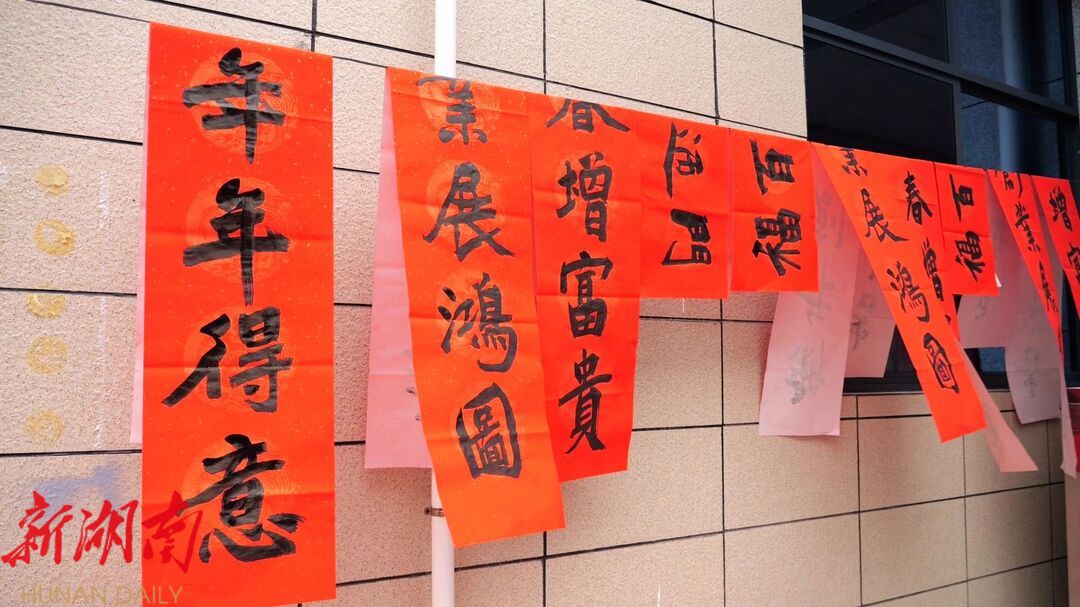 年年得意
業展鴻圖
春增富貴
百福
業展鴻圖
春增
百福
業展
增富
新湖南
HUNAN DAILY